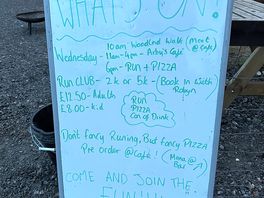 WHAT'S ON!
10am Woodland Walk (Meet @ Café)
Wednesday - 11am-4pm - Arty's Café
6pm - RUN + PIZZA
RUN CLUB - 2k or 5k - / Book in with Robyn
£12.50 - Adults
£8.00 - kid
RUN
PIZZA
Can of Drink
Don't fancy Runing, But fancy PIZZA
Pre order @ Café! (Mona @ Bar)
COME AND JOIN THE
FUN!!!